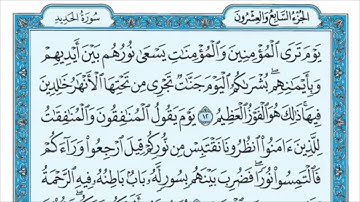 سُورَةُ الحَدِيدِ
الجُزْءُ السَّابِعُ وَالعِشْرُونَ
يَوْمَ تَرَى ٱلْمُؤْمِنِينَ وَٱلْمُؤْمِنَٰتِ يَسْعَىٰ نُورُهُم بَيْنَ أَيْدِيهِمْ
وَبِأَيْمَٰنِهِم بُشْرَىٰكُمُ ٱلْيَوْمَ جَنَّٰتٌ تَجْرِى مِن تَحْتِهَا ٱلْأَنْهَٰرُ خَٰلِدِينَ
فِيهَا ۚ ذَٰلِكَ هُوَ ٱلْفَوْزُ ٱلْعَظِيمُ ۝١٢ يَوْمَ يَقُولُ ٱلْمُنَٰفِقُونَ وَٱلْمُنَٰفِقَٰتُ
لِلَّذِينَ ءَامَنُوا۟ ٱنظُرُونَا نَقْتَبِسْ مِن نُّورِكُمْ قِيلَ ٱرْجِعُوا۟ وَرَآءَكُمْ
فَٱلْتَمِسُوا۟ نُورًا فَضُرِبَ بَيْنَهُم بِسُورٍ لَّهُۥ بَابٌۢ بَاطِنُهُۥ فِيهِ ٱلرَّحْمَةُ